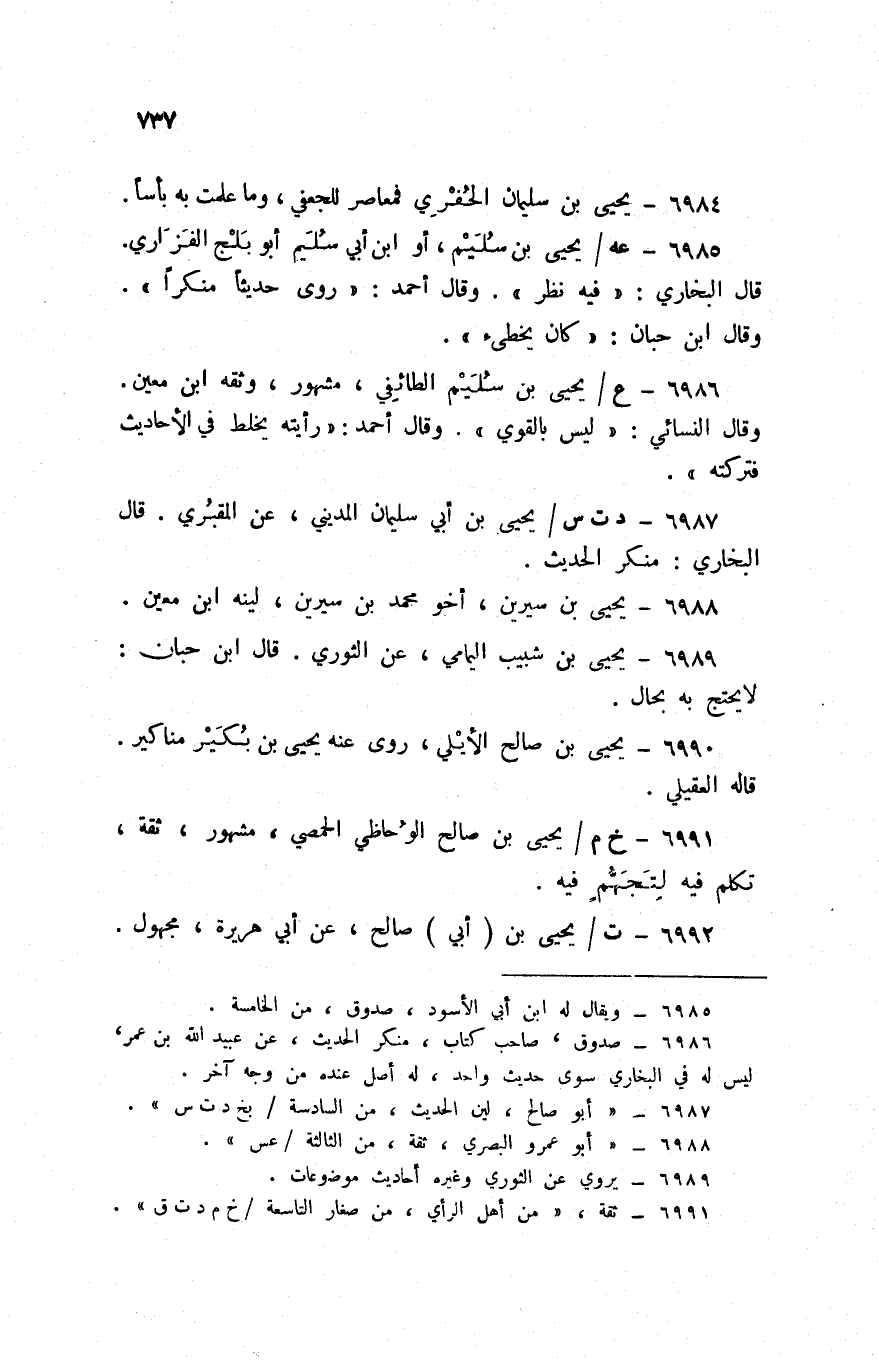 ٧٣٧
٦٩٨٤ – يحيى بن سليمان الحُفْرِي فمعاصر للجعفي ، وما علمت به بأساً .
٦٩٨٥ – عه / يحيى بن سُلَيْم ، أو ابن أبي سُلَيم أبو بَلْج الفَزَاري.
قال البخاري : « فيه نظر » . وقال أحمد : « روى حديثاً منكراً » .
وقال ابن حبان : « كان يخطىء » .
٦٩٨٦ – ع / يحيى بن سُلَيْم الطائفِي ، مشهور ، وثقه ابن معين .
وقال النسائي : « ليس بالقوي » . وقال أحمد : « رأيته يخلط في الأحاديث
فتركته » .
٦٩٨٧ – د ت س / يحيى بن أبي سليمان المديني ، عن المقبُري . قال
البخاري : منكر الحديث .
٦٩٨٨ – يحيى بن سيرين ، أخو محمد بن سيرين ، لينه ابن معين .
٦٩٨٩ – يحيى بن شبيب اليمامي ، عن الثوري . قال ابن حبان :
لايحتج به بحال .
٦٩٩٠ – يحيى بن صالح الأيْلي ، روى عنه يحيى بن بُكَيْر مناكير .
قاله العقيلي .
٦٩٩١ – خ م / يحيى بن صالح الوُحاظي الحمصي ، مشهور ، ثقة ،
تكلم فيه لِتَجَهُّمٍ فيه .
٦٩٩٢ – ت / يحيى بن ( أبي ) صالح ، عن أبي هريرة ، مجهول .
٦٩٨٥ – ويقال له ابن أبي الأسود ، صدوق ، من الخامسة .
٦٩٨٦ – صدوق ، صاحب كتاب ، منكر الحديث ، عن عبيد الله بن عمر ،
ليس له في البخاري سوى حديث واحد ، له أصل عنده من وجه آخر .
٦٩٨٧ – « أبو صالح ، لين الحديث ، من السادسة / بخ د ت س » .
٦٩٨٨ – « أبو عمرو البصري ، ثقة ، من الثالثة / عس » .
٦٩٨٩ – يروي عن الثوري وغيره أحاديث موضوعات .
٦٩٩١ – ثقة ، « من أهل الرأي ، من صغار التاسعة / خ م د ت ق » .